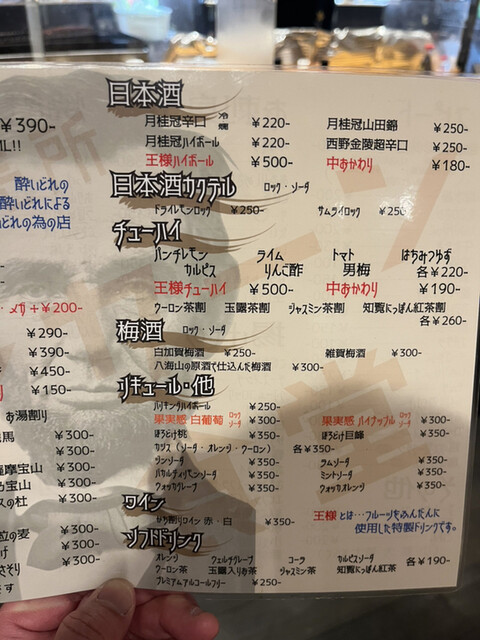 ¥390-
ML!!
酔いどれの
酔いどれによる
いどれの為の店
メガ+¥200-
¥290-
¥390-
¥450-
¥150-
お湯割り
¥300-
¥300-
薩摩宝山
¥300-
宝山
¥300-
スの杜
¥300-
¥300-
粒の麦
¥300-
¥300-
さそり
日本酒
月桂冠辛口 冷 燗 ¥220- 月桂冠山田錦 ¥250-
月桂冠ハイボール ¥220- 西野金陵超辛口 ¥250-
王様ハイボール ¥500- 中おかわり ¥180-
日本酒カクテル ロック・ソーダ
ドライレモンロック ¥250- サムライロック ¥250
チューハイ
パンチレモン ライム トマト はちみつゆず
カルピス りんご酢 男梅 各¥220-
王様チューハイ ¥500- 中おかわり ¥190-
ウーロン茶割 玉露茶割 ジャスミン茶割 知覧にっぽん紅茶割
各¥260-
梅酒 ロック・ソーダ
白加賀梅酒 ¥250- 雑賀梅酒 ¥300-
八海山の原酒で仕込んだ梅酒 ¥300-
リキュール・他
バイキングハイボール ¥250-
果実感 白葡萄 ロック ソーダ ¥300- 果実感 パイナップル ロック ソーダ ¥300-
ほろどけ桃 ¥300- ほろどけ巨峰 ¥300-
カシス（ソーダ・オレンジ・ウーロン） 各¥350-
ジンソーダ ¥350- ラムソーダ ¥350-
バカルディレモンソーダ ¥350- ミントソーダ ¥350-
ウォッカグレープ ¥350- ウォッカオレンジ ¥350-
ワイン
かち割りワイン 赤・白 ¥350-
王様とは…フルーツをふんだんに
使用した特製ドリンクです。
ソフトドリンク
オレンジ ウェルチグレープ コーラ カルピスソーダ 各¥190-
ウーロン茶 玉露入りお茶 ジャスミン茶 知覧にっぽん紅茶
プレミアムアルコールフリー ¥250-